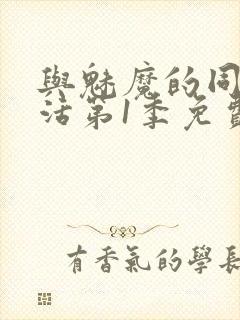 與魅魔的同
活第1季免費
有香氣的學長